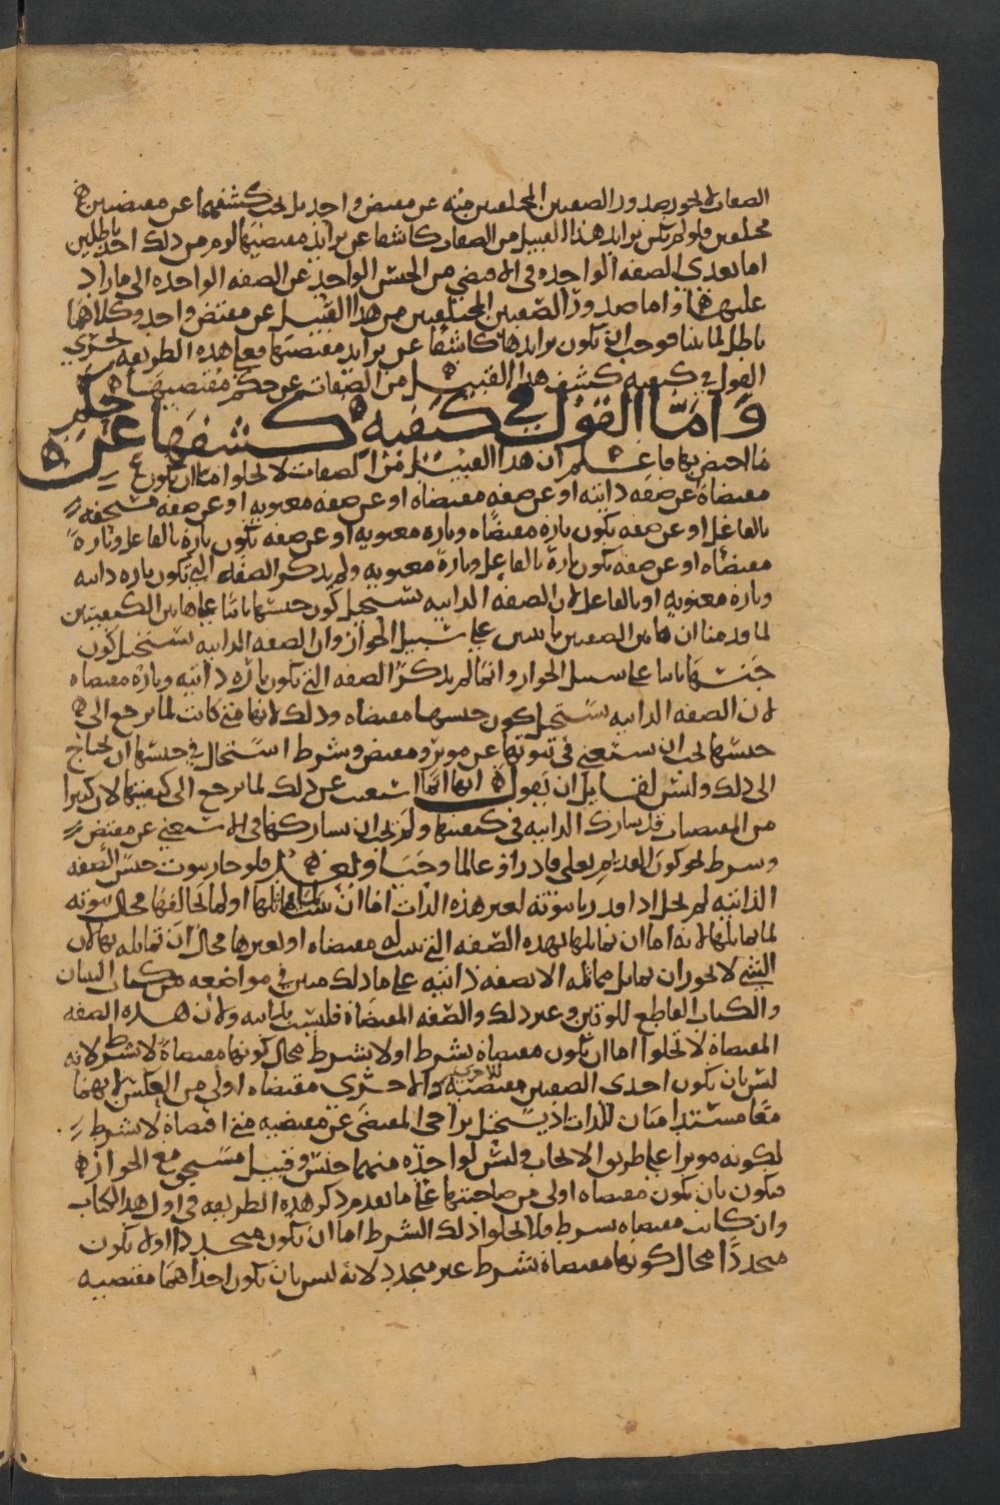 الصفات لا يجوز صدور الصفتين المختلفتين منه عن مقتض واحد بل يجب كشفهما عن مقتضيين
مختلفين فلو لم يكن تزايد هذا القبيل من الصفات كاشفا عن تزايد مقتضيها لزم من ذلك احد باطلين
اما تعدي الصفة الواحدة في الاقتضى من الجنس الواحد عن الصفة الواحدة الى ما زاد
عليها واما صدور الصفتين المختلفتين من هذا القبيل عن مقتض واحد وكلاهما
باطل لما بينا فوجب ان يكون تزايدها كاشفا عن تزايد مقتضيها فعلى هذه الطريقة يجري
القول في كيفية كشف هذا القبيل من الصفات عن حكم مقتضيها
واما القول في كيفية كشفها عن حكم
ما اختص بها فاعلم ان هذا القبيل من الصفات لا يخلوا اما ان يكون
مقتضاة عن صفة ذاتية او عن صفة مقتضاه او عن صفة معنوية او عن صفة مستحقة
بالفاعل او عن صفة تكون تارة مقتضاه وتارة معنوية او عن صفة تكون تارة بالفاعل وتارة
مقتضاه او عن صفة تكون تارة بالفاعل وتارة معنوية ولم يذكر الصفة التي تكون تارة ذاتية
وتارة معنوية او بالفاعل لان الصفة الذاتية يستحيل كون جنسها ثابتا على هاتين الكيفيتين
لما قدمنا ان هاتين الصفتين ثابتتين على سبيل الجواز وان الصفة الذاتية يستحيل كون
جنسها ثابتا على سبيل الجواز وانما لم يذكر الصفة التي تكون تارة ذاتية وتارة مقتضاه
لان الصفة الذاتية يستحيل كون جنسها مقتضاه وذلك لانها متى كانت لما يرجع الى
جنسها يجب ان يستغني في ثبوتها عن موثر ومقتض وشرط استحال في جنسها ان يحتاج
الى ذلك وليس لقائل ان يقول انها انما استغنت عن ذلك لما يرجع الى كيفيتها لان كثيرا
من المقتضيات قد يشارك الذاتية في كيفيتها ولم يجب ان يشاركها في الاستغنى عن مقتض
وشرط نحو كون القديم تعلى قادرا وعالما وحيا فلو جاز ثبوت جنس الصفة
الذاتية لم يخل اذا قدرنا ثبوته لغير هذه الذات اما ان يثبت لما يماثلها او لما يخالفها ومحال ثبوته
لما يماثلها لانه اما ان تماثلها بهذه الصفة التي ثبتت له مقتضاه او لغيرها محال ان تماثله بها لان
الشي لا يجوز ان يماثل مماثله الا بصفة ذاتية على ما ذلك مبين في مواضعه من كتاب البيان
والكتاب القاطع للوتين وغير ذلك والصفة المقتضاة فليست بذاتية ولان هذه الصفة
المقتضاة لا تخلوا اما ان تكون مقتضاة بشرط او لا بشرط محال كونها مقتضاة لا بشرط لانه
ليس بان يكون احدى الصفتين مقتضية للاخرى والاخرى مقتضاه اولى من العكس لانهما
معا مستدامتان للذات اذ يستحيل تراخي المقتضى عن مقتضيه متى اقتضاه لا بشرط
لكونه موثرا على طريق الايجاب وليس لواحدة منهما جنس وقبيل مستحق مع الجواز
فيكون بان يكون مقتضاه اولى من صاحبتها على ما تقدم ذكر هذه الطريقة في اول هذا الكتاب
وان كانت مقتضاه بشرط فلا يخلوا ذلك الشرط اما ان يكون متجددا او لا يكون
متجددا محال كونها مقتضاة بشرط غير متجدد لانه ليس بان يكون احداهما مقتضيه